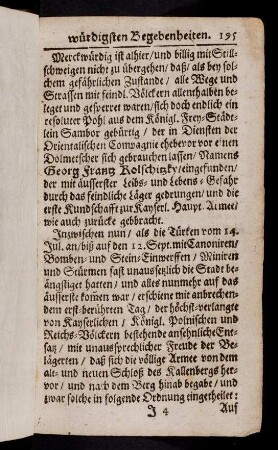 würdigsten Begebenheiten. 195
Merckwürdig ist alhier/und billig mit Still-
schweigen nicht zu übergehen/ daß/ als bey sol-
chem gefährlichen Zustande/ alle Wege und
Strassen mit feindl. Völckern allenthalben be-
leget und gesperret waren/sich doch endlich ein
resoluter Pohl aus dem Königl. Frey-Städt-
lein Sambor gebürtig/ der in Diensten der
Orientalischen Compagnie ehe vor vor einen
Dolmetscher sich gebrauchen lassen/ Namens
Georg Frantz Kolschitzky/eingefunden/
der mit äusserster Leibs- und Lebens-Gefahr
durch das feindliche Läger gedrungen/ und die
erste Kundschafft zur Kayserl. Haupt-Armee/
wie auch zurücke gebracht.
Inzwischen nun/ als die Türken vom 14.
Jul. an/biß auf den 12. Sept. mit Canoniren/
Bomben- und Stein-Einwerffen/ Miniren
und Stürmen fast unausetzlich die Stadt be-
ängstiget hatten/ und alles nunmehr auf das
äusserste kommen war/ erschiene mit anbrechen-
dem erst-berührten Tag/ der höchst-verlangte
von Kayserlichen/ Königl. Polnischen und
Reichs-Völckern bestehende ansehnliche Ent-
satz/ mit unaussprechlicher Freude der Be-
lägerten/ daß sich die völlige Armee von dem
alt- und neuen Schloß des Kallenbergs her-
vor/ und nach dem Berg hinab begabe/ und
zwar solche in folgende Ordnung eingetheilet:
J 4 Auf